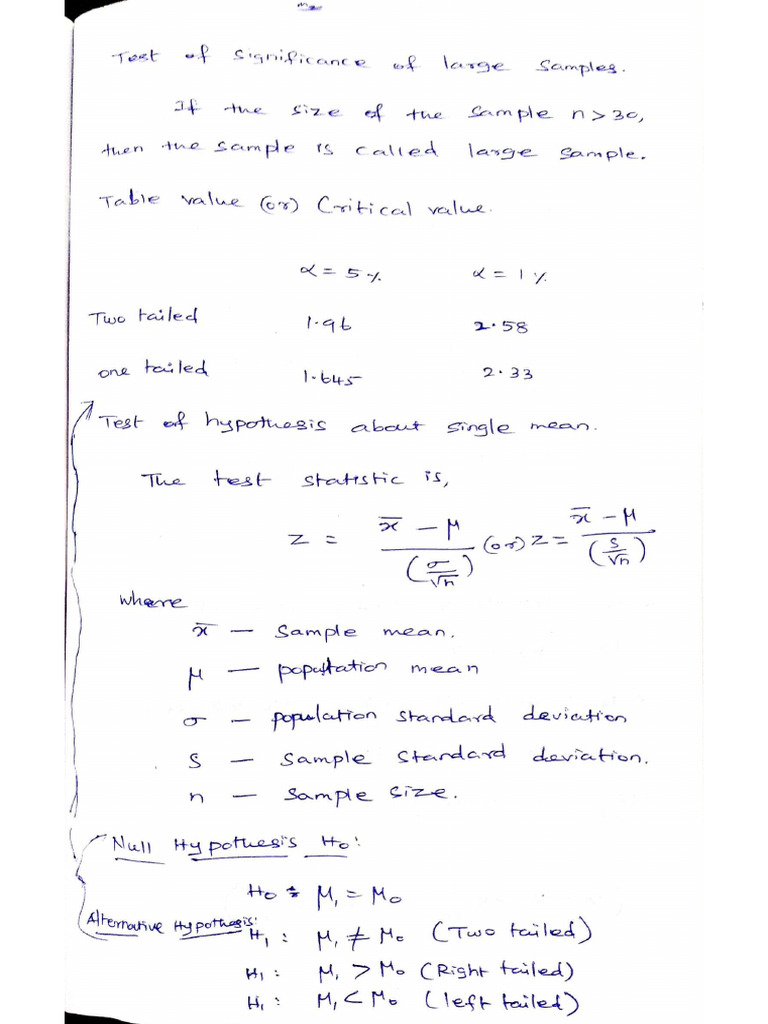 Test of Significance of large Samples.
If the size of the Sample n > 30,
then the Sample is called large Sample.
Table value (or) Critical value.
α = 5 % α = 1 %
Two tailed 1.96 2.58
one tailed 1.645 2.33
Test of hypothesis about single mean.
The test statistic is,
z = x̄ - μ / (σ/√n) (or) z = x̄ - μ / (s/√n)
where
x̄ — Sample mean.
μ — population mean
σ — population standard deviation
S — Sample Standard deviation.
n — Sample size.
Null Hypothesis H₀:
H₀ : μ₁ = μ₀
Alternative Hypothesis:
H₁ : μ₁ ≠ μ₀ (Two tailed)
H₁ : μ₁ > μ₀ (Right tailed)
H₁ : μ₁ < μ₀ (left tailed)